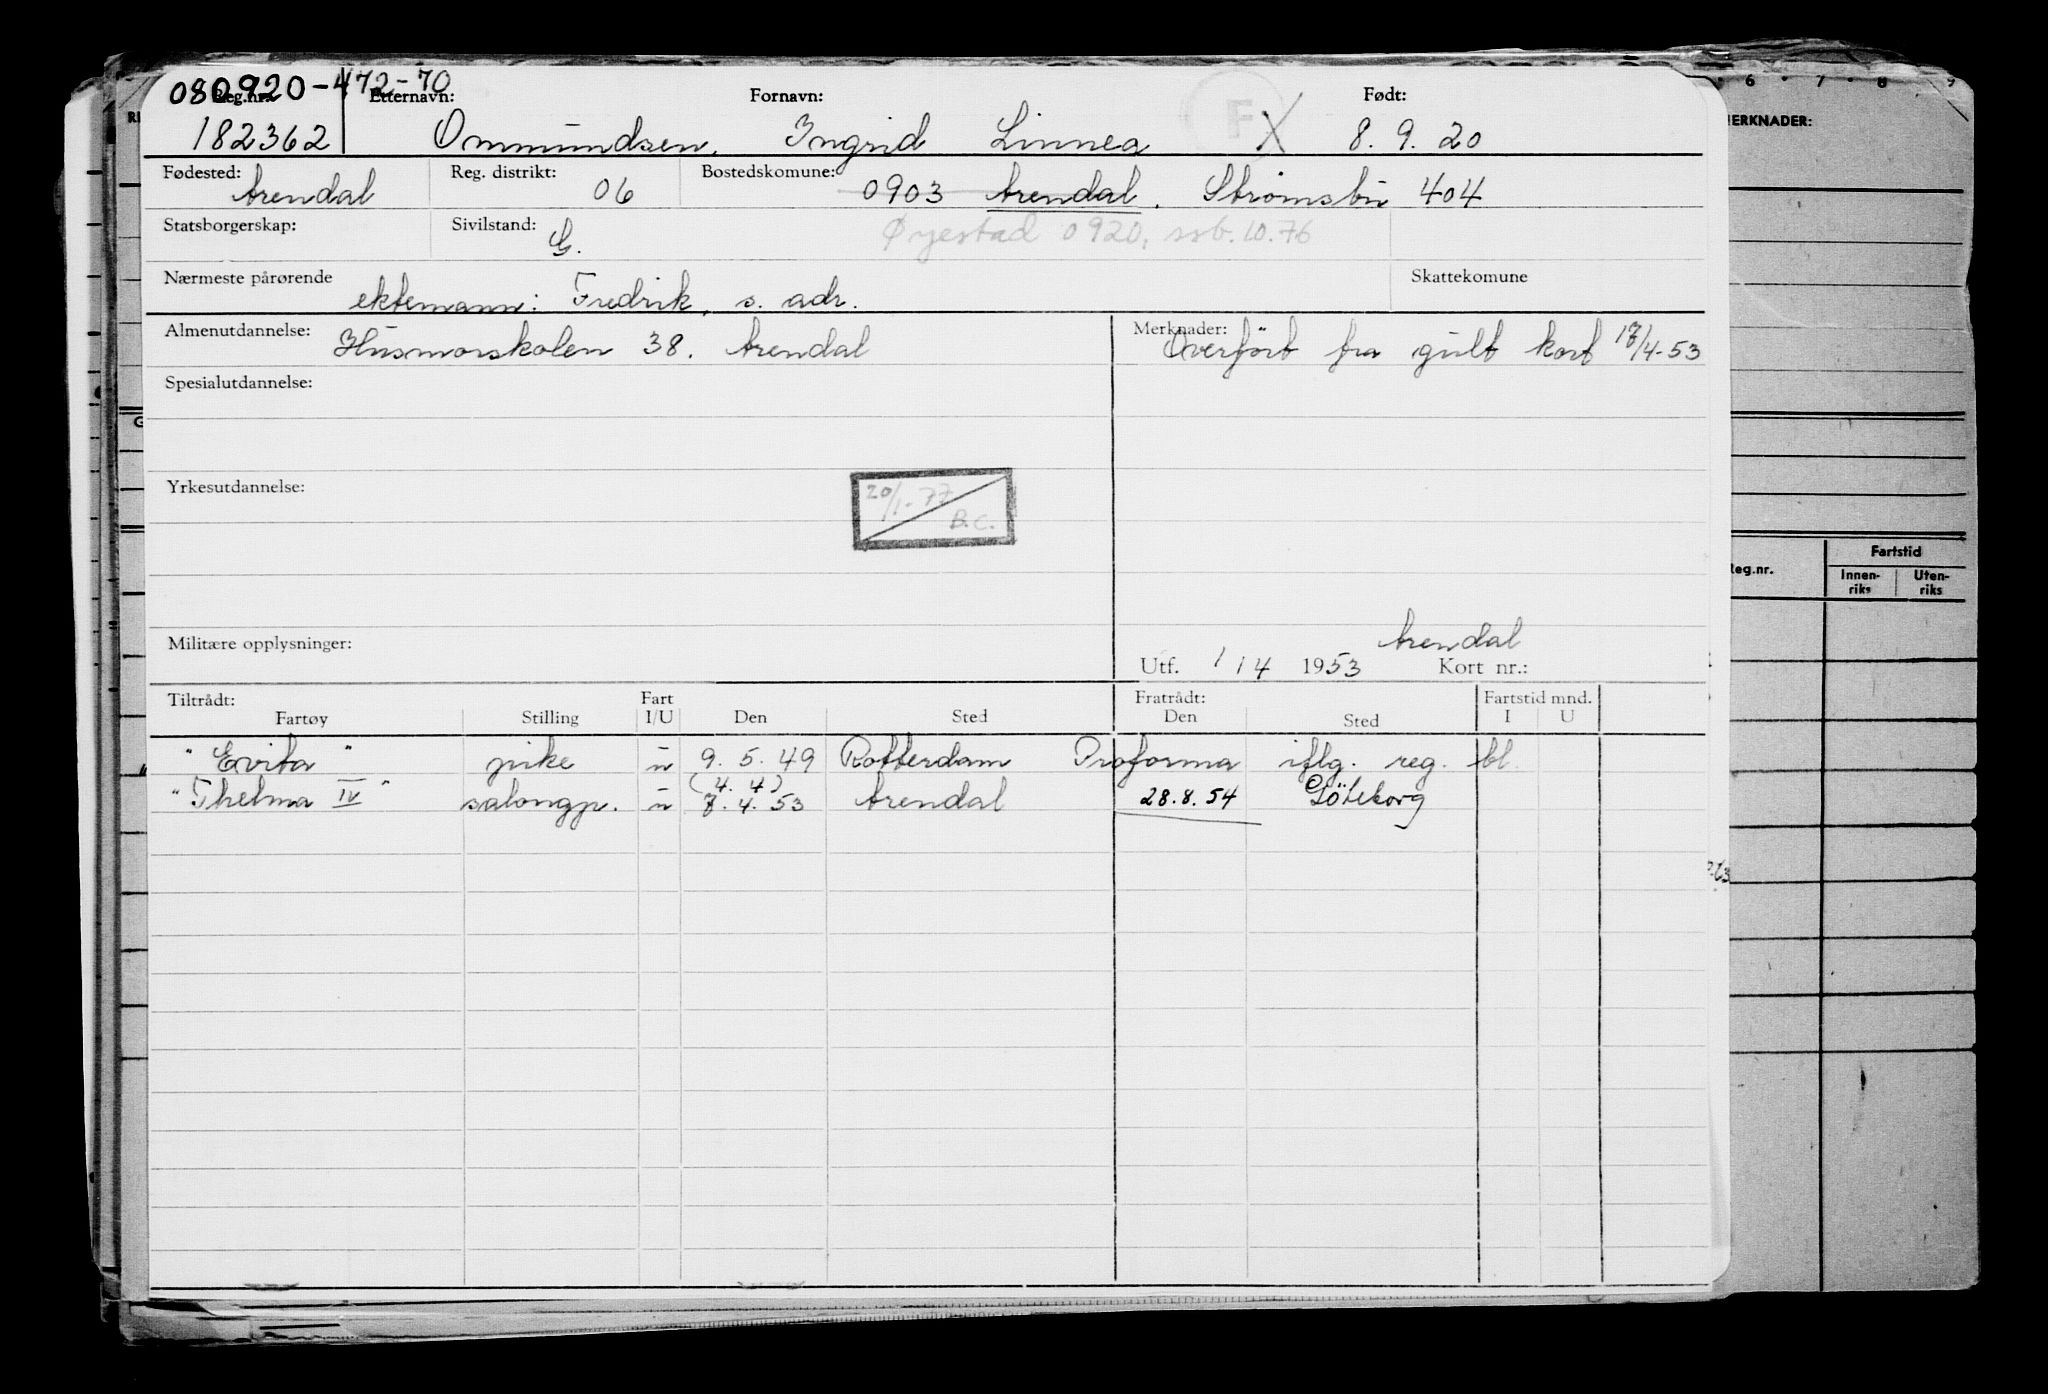 080920-472-70
Reg.nr. Etternavn: Fornavn: Født:
182362 Ommundsen, Ingrid Linnea F X 8. 9. 20
Fødested: Reg. distrikt: Bostedskomune:
Arendal 06 0903 Arendal. Strømsbu 404
Statsborgerskap: Sivilstand:
G. Øyestad 0920, ssb. 10.76
Nærmeste pårørende Skattekomune
ektemann: Fredrik, s. adr.
Almenutdannelse: Merknader:
Husmorskolen 38. Arendal Overfört fra gult kort /4-53
Spesialutdannelse:
Yrkesutdannelse:
20/1-77 B.C.
Militære opplysninger:
Arendal
Utf. 1/4 1953 Kort nr.:
Tiltrådt: Fart Fratrådt: Fartstid mnd.
Fartøy Stilling I/U Den Sted Den Sted I U
"Evita" pike u 9. 5. 49 Rotterdam Proforma iflg. reg. bl.
(4. 4)
"Thelma IV" salongp. u 7. 4. 53 Arendal 28.8.54 Göteborg
6 7 8 9
MERKNADER:
Reg.nr. Fartstid
Innen-riks Uten-riks